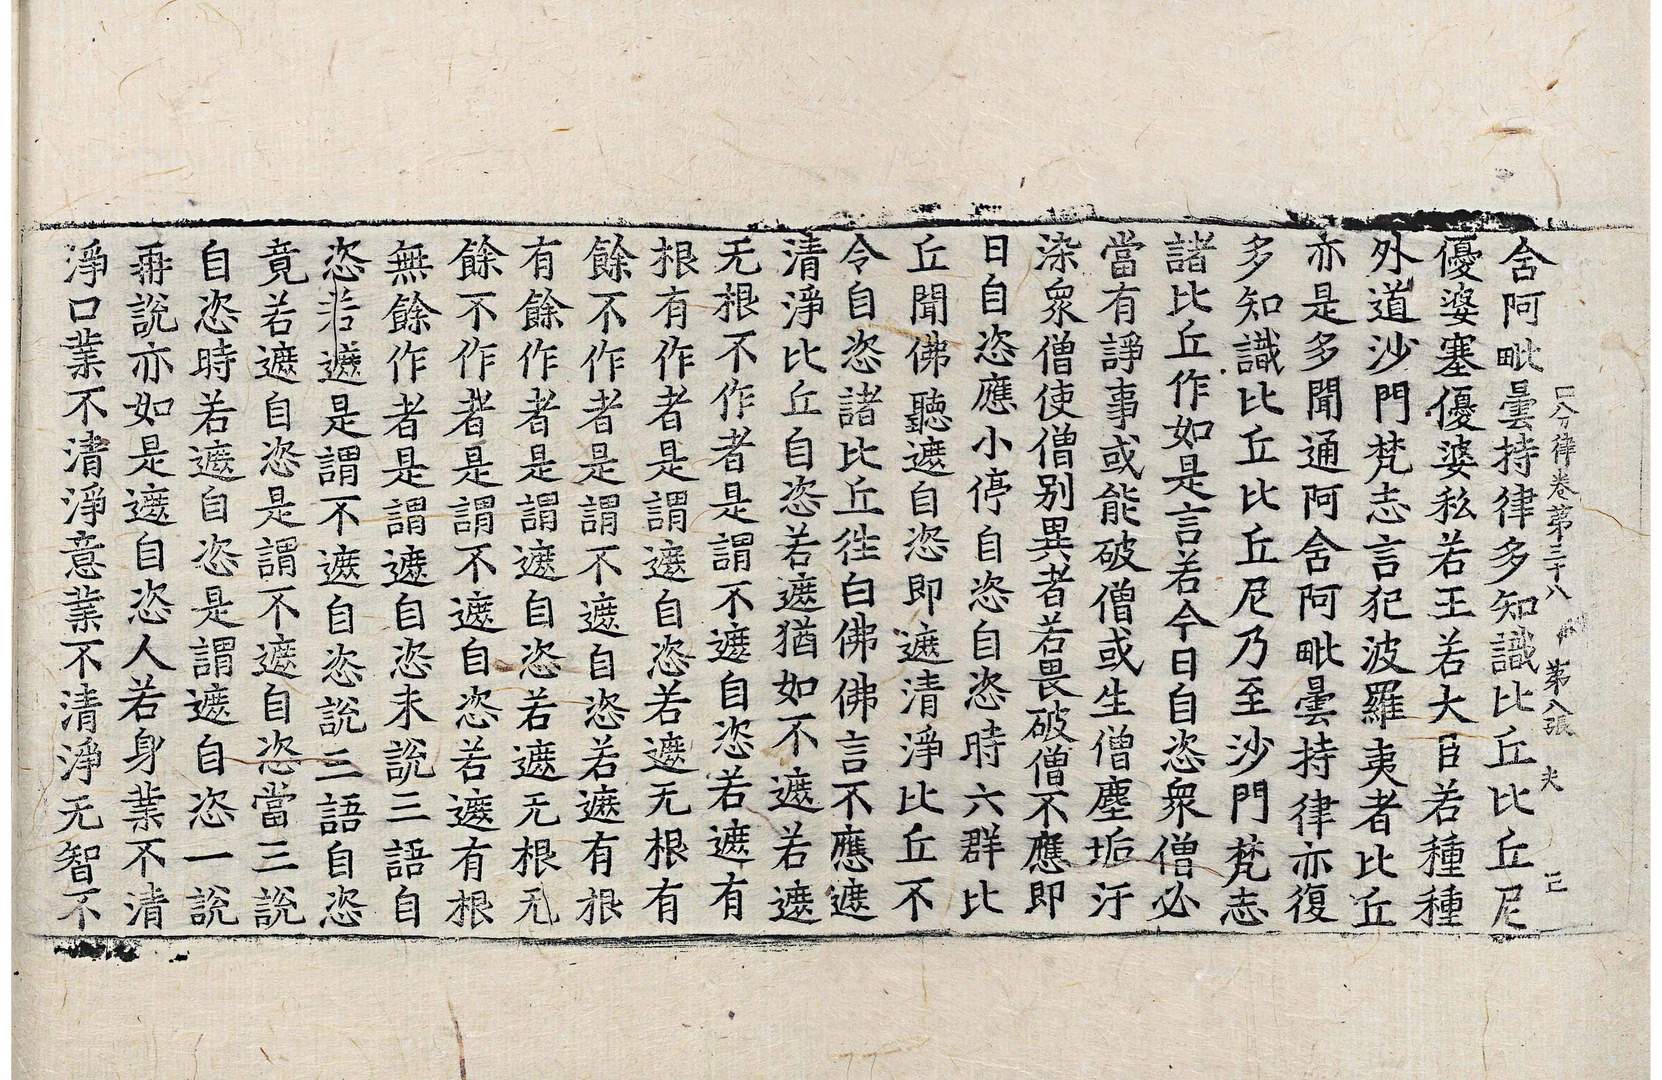 四分律卷第三十八 第八張 夫
舍阿毗曇持律多知識比丘比丘尼
優婆塞優婆私若王若大臣若種種
外道沙門梵志言犯波羅夷者比丘
亦是多聞通阿舍阿毗曇持律亦復
多知識比丘比丘尼乃至沙門梵志
諸比丘作如是言若今日自恣衆僧必
當有諍事或能破僧或生僧塵垢汙
染衆僧使僧別異者若畏破僧不應即
日自恣應小停自恣自恣時六群比
丘聞佛聽遮自恣即遮清淨比丘不
令自恣諸比丘徃白佛佛言不應遮
清淨比丘自恣若遮猶如不遮若遮
无根不作者是謂不遮自恣若遮有
根有作者是謂遮自恣若遮无根有
餘不作者是謂不遮自恣若遮有根
有餘作者是謂遮自恣若遮无根无
餘不作者是謂不遮自恣若遮有根
無餘作者是謂遮自恣未說三語自
恣若遮是謂不遮自恣說三語自恣
竟若遮自恣是謂不遮自恣當三說
自恣時若遮自恣是謂遮自恣一說
再說亦如是遮自恣人若身業不清
淨口業不清淨意業不清淨无智不